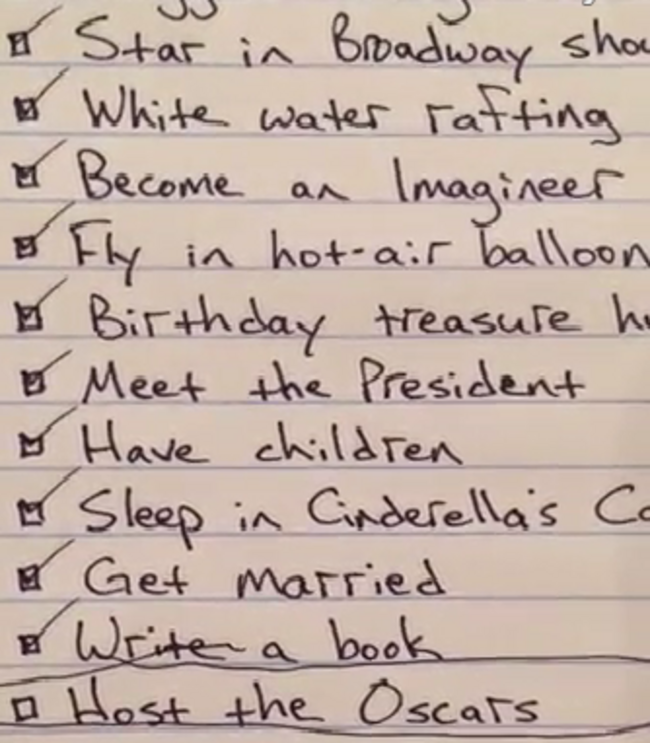 Star in Broadway
White water rafting
Become an Imagineer
Fly in hot-air balloon
Birthday treasure
Meet the President
Have children
Sleep in Cinderella's
Get married
Write a book
Host the Oscars